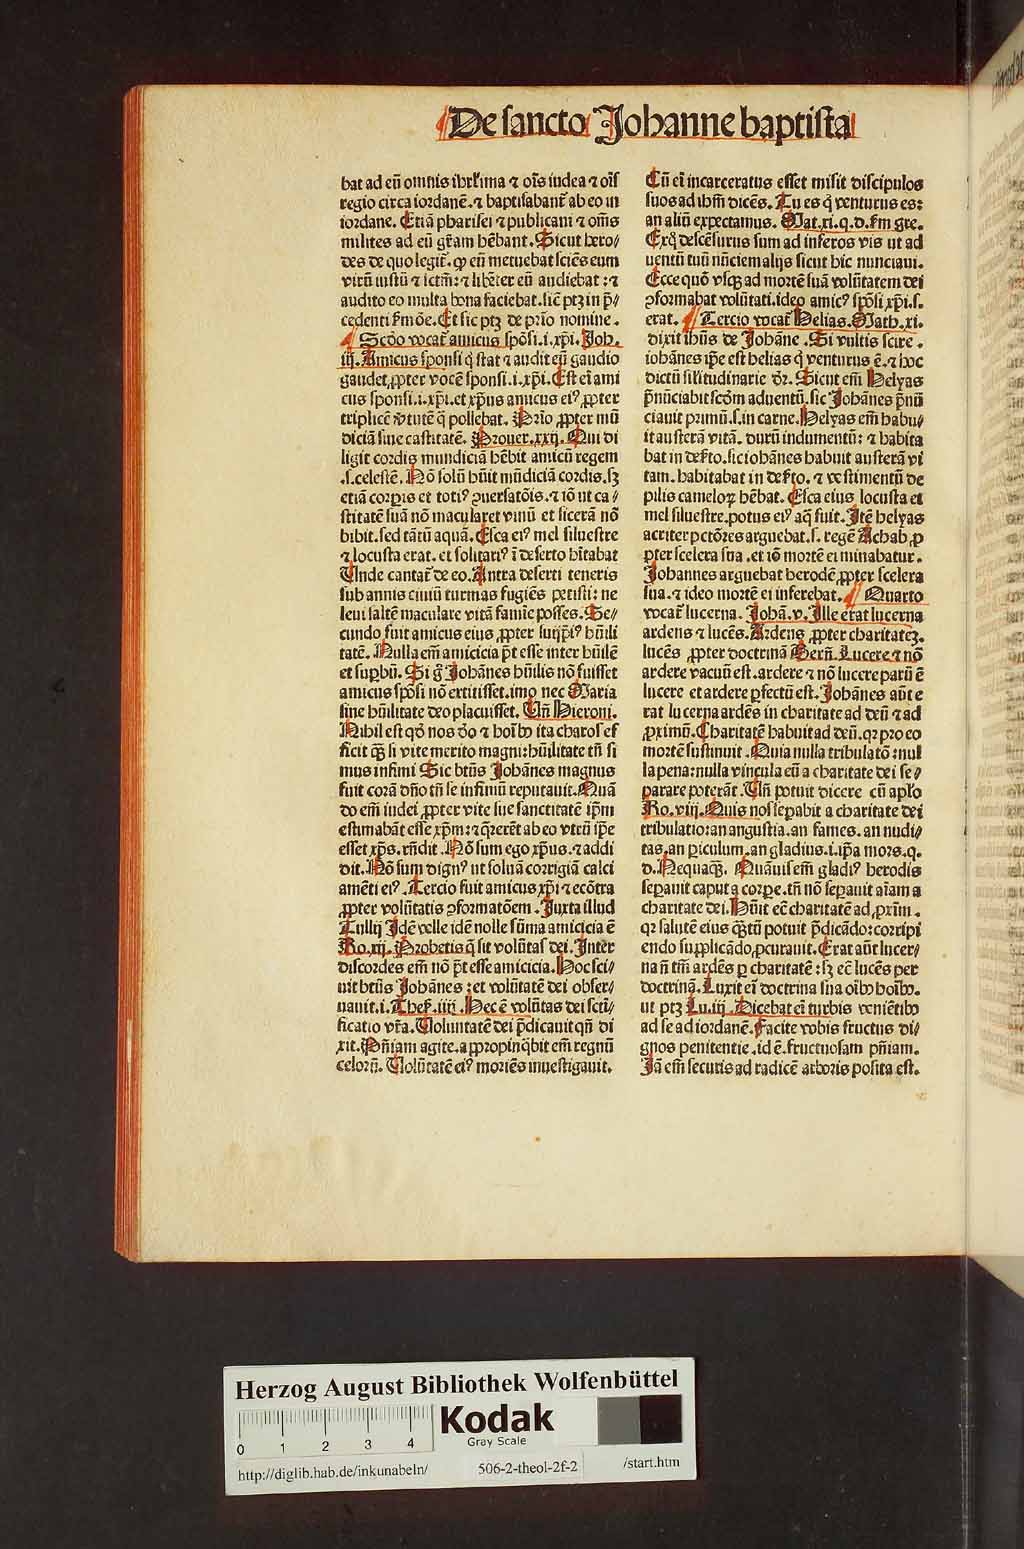 De sancto Johanne baptista
bat ad eū omnis ihrl'ima ⁊ oīs iudea ⁊ oīs
regio circa iordanē. ⁊ baptisabant᷑ ab eo in
iordane. Etiā pharisei ⁊ publicani ⁊ om̄s
milites ad eū gr̄am hēbant. Sicut hero/
des de quo legit᷑. ꝙ eū metuebat sciēs eum
virū iustū ⁊ sctm̄: ⁊ libēter eū audiebat: ⁊
audito eo multa bona faciebat. sic̄ ptꝫ in p̄/
cedenti s̄mōe. Et sic ptꝫ de prīo nomine.
Scd̄o vocat᷑ amicus spōsi. i. xp̄i. Joh.
iij. Amicus sponsi q̇ stat ⁊ audit eū gaudio
gaudet ꝓpter vocē sponsi. i. xp̄i. Est eī ami
cus sponsi. i. xp̄i. et xp̄us amicus eiꝰ ꝓpter
triplicē v̄tutē q̄ pollebat. Prīo ꝓpter mū
diciā siue castitatē. Prouer. xxij. Qui di
ligit cordis mundiciā hēbit amicū regem
.s. celestē. Nō solū hūit mūdiciā cordis. sꝫ
etiā corꝑis et totiꝰ ꝯuersatōis. ⁊ iō ut ca/
stitatē suā nō macularet vinū et sicerā nō
bibit. sed tātū aquā. Esca eiꝰ mel siluestre
⁊ locusta erat. et solitariꝰ ī deserto hītabat
Unde cantat᷑ de eo. Antra deserti teneris
sub annis ciuiū turmas fugiēs petisti: ne
leui saltē maculare vitā famīe posses. Se/
cundo fuit amicus eius ꝓpter sui ip̄iꝰ hūili
tatē. Nulla em̄ amicicia p̄t esse inter hūilē
et supbū. Si g̊ Johānes hūilis nō fuisset
amicus spōsi nō extitisset. imo nec Maria
sine hūilitate deo placuisset. Un̄ Hieroni.
Nihil est qd̄ nos d̄o ⁊ hoībꝰ ita charos ef
ficit qͣꝫ si vite merito magni: hūilitate tn̄ si
mus infimi Sic bt̄us Johānes magnus
fuit corā dn̄o tn̄ se infimū reputauit. Quā
do em̄ iudei ꝓpter vite sue sanctitatē ip̄m
estimabāt esse xp̄m: ⁊ q̄rerēt ab eo vtrū ip̄e
esset xp̄s. rn̄dit. Nō sum ego xp̄us. ⁊ addi
dit. Nō sum dignꝰ ut soluā corrigiā calci
amēti eiꝰ. Tercio fuit amicus xp̄i ⁊ ecōtra
ꝓpter volūtatis ꝯformatōem. Juxta illud
Tullij Idē velle idē nolle sūma amicicia ē
Ro. xij. Probetis q̄ sit volūtas dei. Inter
discordes em̄ nō p̄t esse amicicia. Hoc sci/
uit bt̄us Johānes: et volūtatē dei obser/
uauit. i. Thes̄. iiij. Hec ē volūtas dei scti̅/
ficatio vr̄a. Uoluntatē dei p̄dicauit qn̄ di
xit. Pn̄iam agite. appropinq̇bit em̄ regnū
celorū. Uolūtatē eiꝰ moriēs inuestigauit.
Cū eī incarceratus esset misit discipulos
suos ad ihm̄ dicēs. Tu es q̇ venturus es:
an aliū expectamus. Mat. xi. q. d. s̄m gre.
Ex q̊ descēsurus sum ad inferos vis ut ad
uentū tuū nūciem alijs sicut hic nunciaui.
Ecce quō vsqꝫ ad mortē suā volūtatem dei
ꝯformabat volūtati. ideo amicꝰ spōsi xp̄i. s.
erat. Tercio vocat᷑ Helias. Math. xi.
dixit ihūs de Johāne. Si vultis scire.
iohānes ip̄e est helias q̇ venturus ē. ⁊ hoc
dictū silitudinarie d̄r. Sicut em̄ Helyas
p̄nūciabit scd̄m aduentū. sic Johānes p̄nū
ciauit primū. s. in carne. Helyas em̄ habu/
it austerā vitā. durū indumentū: ⁊ habita
bat in des̄to. sic iohānes habuit austerā vi
tam. habitabat in des̄to. ⁊ vestimentū de
pilis cameloꝝ hēbat. Esca eius locusta et
mel siluestre. potus eiꝰ aq̄ fuit. Itē helyas
acriter pctōres arguebat. s. regē Achab ꝓ
pter scelera sua. et iō mortē ei minabatur.
Johannes arguebat herodē ꝓpter scelera
sua. ⁊ ideo mortē ei inferebat. Quarto
vocat᷑ lucerna. Johā. v. Ille erat lucerna
ardens ⁊ lucēs. Ardens ꝓpter charitatēꝫ.
lucēs ꝓpter doctrinā Bern̄. Lucere ⁊ nō
ardere vacuū est. ardere ⁊ nō lucere parū ē
lucere et ardere ꝑfectū est. Johānes aūt e
rat lucerna ardēs in charitate ad deū ⁊ ad
ꝓximū. Charitatē habuit ad deū. qꝛ pro eo
mortē sustinuit. Quia nulla tribulatō: nul
la pena: nulla vincula eū a charitate dei se/
parare poterāt. Un̄ potuit dicere cū apl̄o
Ro. viij. Quis nos seꝑabit a charitate dei
tribulatio: an angustia. an fames. an nudi/
tas. an ꝑiculum. an gladius. i. ip̄a mors. q.
d. Nequaqͣꝫ. Quāuis em̄ gladiꝰ herodis
seꝑauit caput a corꝑe. tn̄ nō seꝑauit aīam a
charitate dei. Hūit ec̄ charitatē ad ꝓxīm.
qꝛ salutē eius qͣꝫtū potuit p̄dicādo: corripi
endo supplicādo ꝓcurauit. Erat aūt lucer/
na n̄ tm̄ ardēs ꝑ charitatē: sꝫ ec̄ lucēs per
doctrinā. Luxit eī doctrina sua oībꝰ hoībꝰ.
ut ptꝫ Lu. iij. Dicebat eī turbis veniētibꝰ
ad se ad iordanē. Facite vobis fructus di/
gnos penitentie. id ē. fructuosam pn̄iam.
Jā em̄ securis ad radicē arboris posita est.
Herzog August Bibliothek Wolfenbüttel
0 1 2 3 4
Kodak
Gray Scale
http://diglib.hab.de/inkunabeln/ 506-2-theol-2f-2 /start.htm